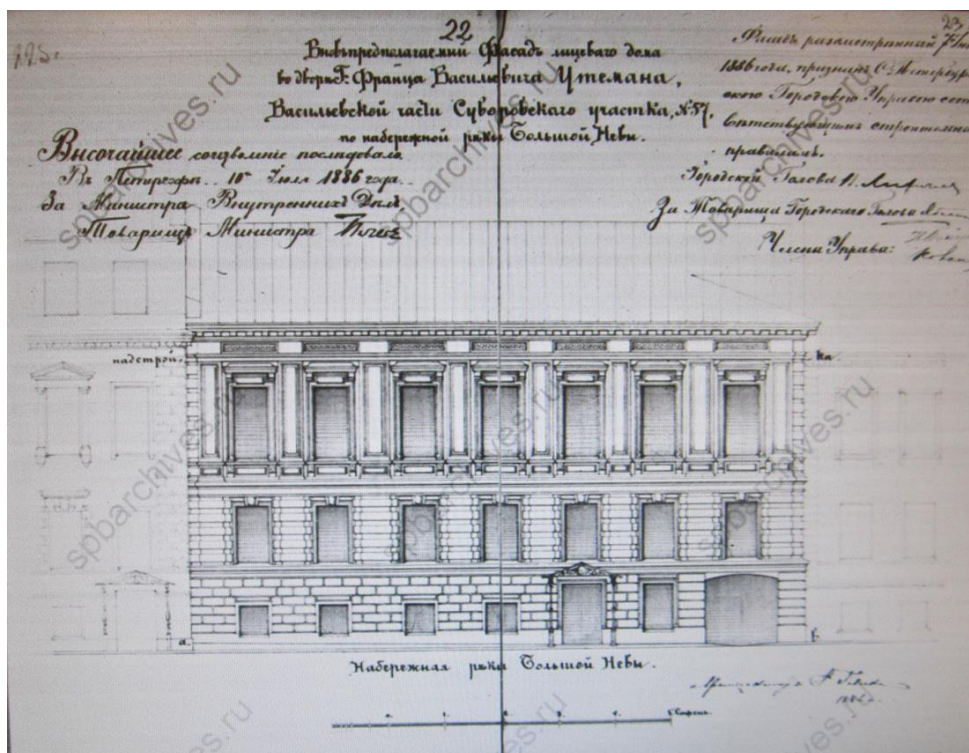 22
23
Вновьпредполагаемый Фасадъ лицеваго дома
во дворѣ Г. Франца Васильевича Утемана,
Васильевской части Суворовскаго участка, №57,
по набережной рѣки Большой Невы.
Высочайшее соизволеніе послѣдовало
Въ Петергофѣ 10го Іюля 1886 года.
За Министра Внутреннихъ Дѣлъ
Товарищъ Министра
Фасадъ разсмотрѣнный
1886 года, признанъ С. Петербург
скою Городскою Управою соот
вѣтствующимъ строительнымъ
правиламъ.
Городской Голова
За Товарища Городскаго Головы
Члены Управы:
надстрой
ка
а.
в.
Набережная рѣки Большой Невы.
spbarchives.ru
spbarchives.ru
spbarchives.ru
spbarchives.ru
spbarchives.ru
spbarchives.ru
spbarchives.ru